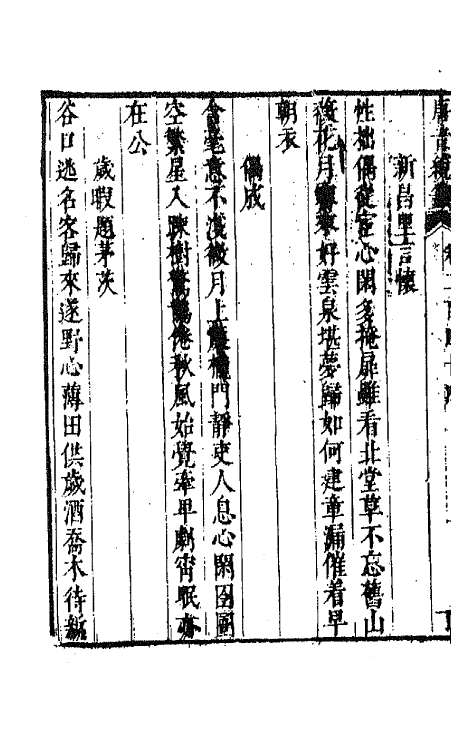 唐音統籤
新昌里言懷
性拙偶從宦心閑多掩扉雖看北堂草不忘舊山
薇花月霽來好雲泉堪夢歸如何建章漏催着早
朝衣
偶成
含毫意不淺微月上簾櫳門靜吏人息心閑囹圄
空繁星入疎樹驚鵲倦秋風始覺牽卑劇宵眠亦
在公
歲暇題茅茨
谷口逃名客歸來遂野心薄田供歲酒喬木待新